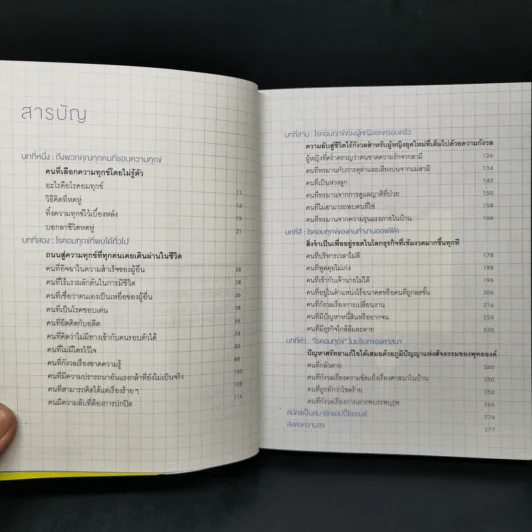 สารบัญ
บทที่หนึ่ง : ถึงพวกคุณทุกคนที่ชอบความทุกข์
คนที่เลือกความทุกข์โดยไม่รู้ตัว
อะไรคือโรคอมทุกข์ 11
วิธีคิดที่หดหู่ 14
ทิ้งความทุกข์ไว้เบื้องหลัง 19
บอกลาชีวิตหดหู่ 21
บทที่สอง : โรคอมทุกข์ที่พบได้ทั่วไป
ถนนสู่ความทุกข์ที่ทุกคนเคยเดินผ่านในชีวิต
คนที่อิจฉาในความสำเร็จของผู้อื่น
คนที่ไร้แรงผลักดันในการมีชีวิต
คนที่เชื่อว่าตนเองเป็นเหยื่อของผู้อื่น
คนที่เป็นโรคชอบเด่น
คนที่ยึดติดกับอดีต
คนที่คิดว่าไม่มีทางเข้ากับคนรอบตัวได้
คนที่ไม่มีใครไว้ใจ
คนที่กังวลเรื่องขาดความรู้
คนที่มีความปรารถนาอันแรงกล้าที่ยังไม่เป็นจริง
คนที่สามารถคิดได้แต่เรื่องร้ายๆ
คนมีความลับที่ต้องการปกปิด
บทที่สาม : โรคอมทุกข์ของผู้หญิงและครอบครัว
ความลับสู่ชีวิตไร้กังวลสำหรับผู้หญิงยุคใหม่ที่เต็มไปด้วยความกังวล
ผู้หญิงที่คร่ำครวญว่าตนขาดความรักจากสามี
คนที่ทรมานกับการดูด่าและเสียดแทงจากแม่สามี
คนที่เป็นห่วงลูก 147
คนที่ทรมานจากการดูแลญาติที่ป่วย 150
คนที่ไม่สามารถพบคนที่ใช่ 158
คนที่ทรมานจากความรุนแรงภายในบ้าน
บทที่สี่ : โรคอมทุกข์ของคนทำงานออฟฟิศ
สิ่งจำเป็นเพื่ออยู่รอดในโลกธุรกิจที่เข้มงวดมากขึ้นทุกที
คนที่บริหารเวลาไม่ดี 178
คนที่พูดคุยไม่เก่ง 188
คนที่เข้ากับเจ้านายไม่ได้ 196
คนที่อยู่ในตำแหน่งไร้อนาคตหรือคนที่ถูกลดขั้น 206
คนที่กังวลเรื่องการเปลี่ยนงาน
คนที่มีปัญหาหนี้สินหรือยากจน
คนที่มีธุรกิจใกล้ล้มละลาย
บทที่ห้า : "โรคอมทุกข์" ในบริบทของศาสนา
ปัญหาศรัทธาแก้ไขได้เสมอด้วยภูมิปัญญาแห่งสัจธรรมของพุทธองค์
คนที่กลัวตาย 240
คนที่กังวลเรื่องความขัดแย้งเรื่องศาสนาในบ้าน 250
คนที่ถูกทักว่าโชคร้าย 256
คนที่กังวลเรื่องการเคารพบรรพบุรุษ 266
สมัครเป็นสมาชิกแฮปปี้ไซเอนซ์
ส่งต่อความสุข 277